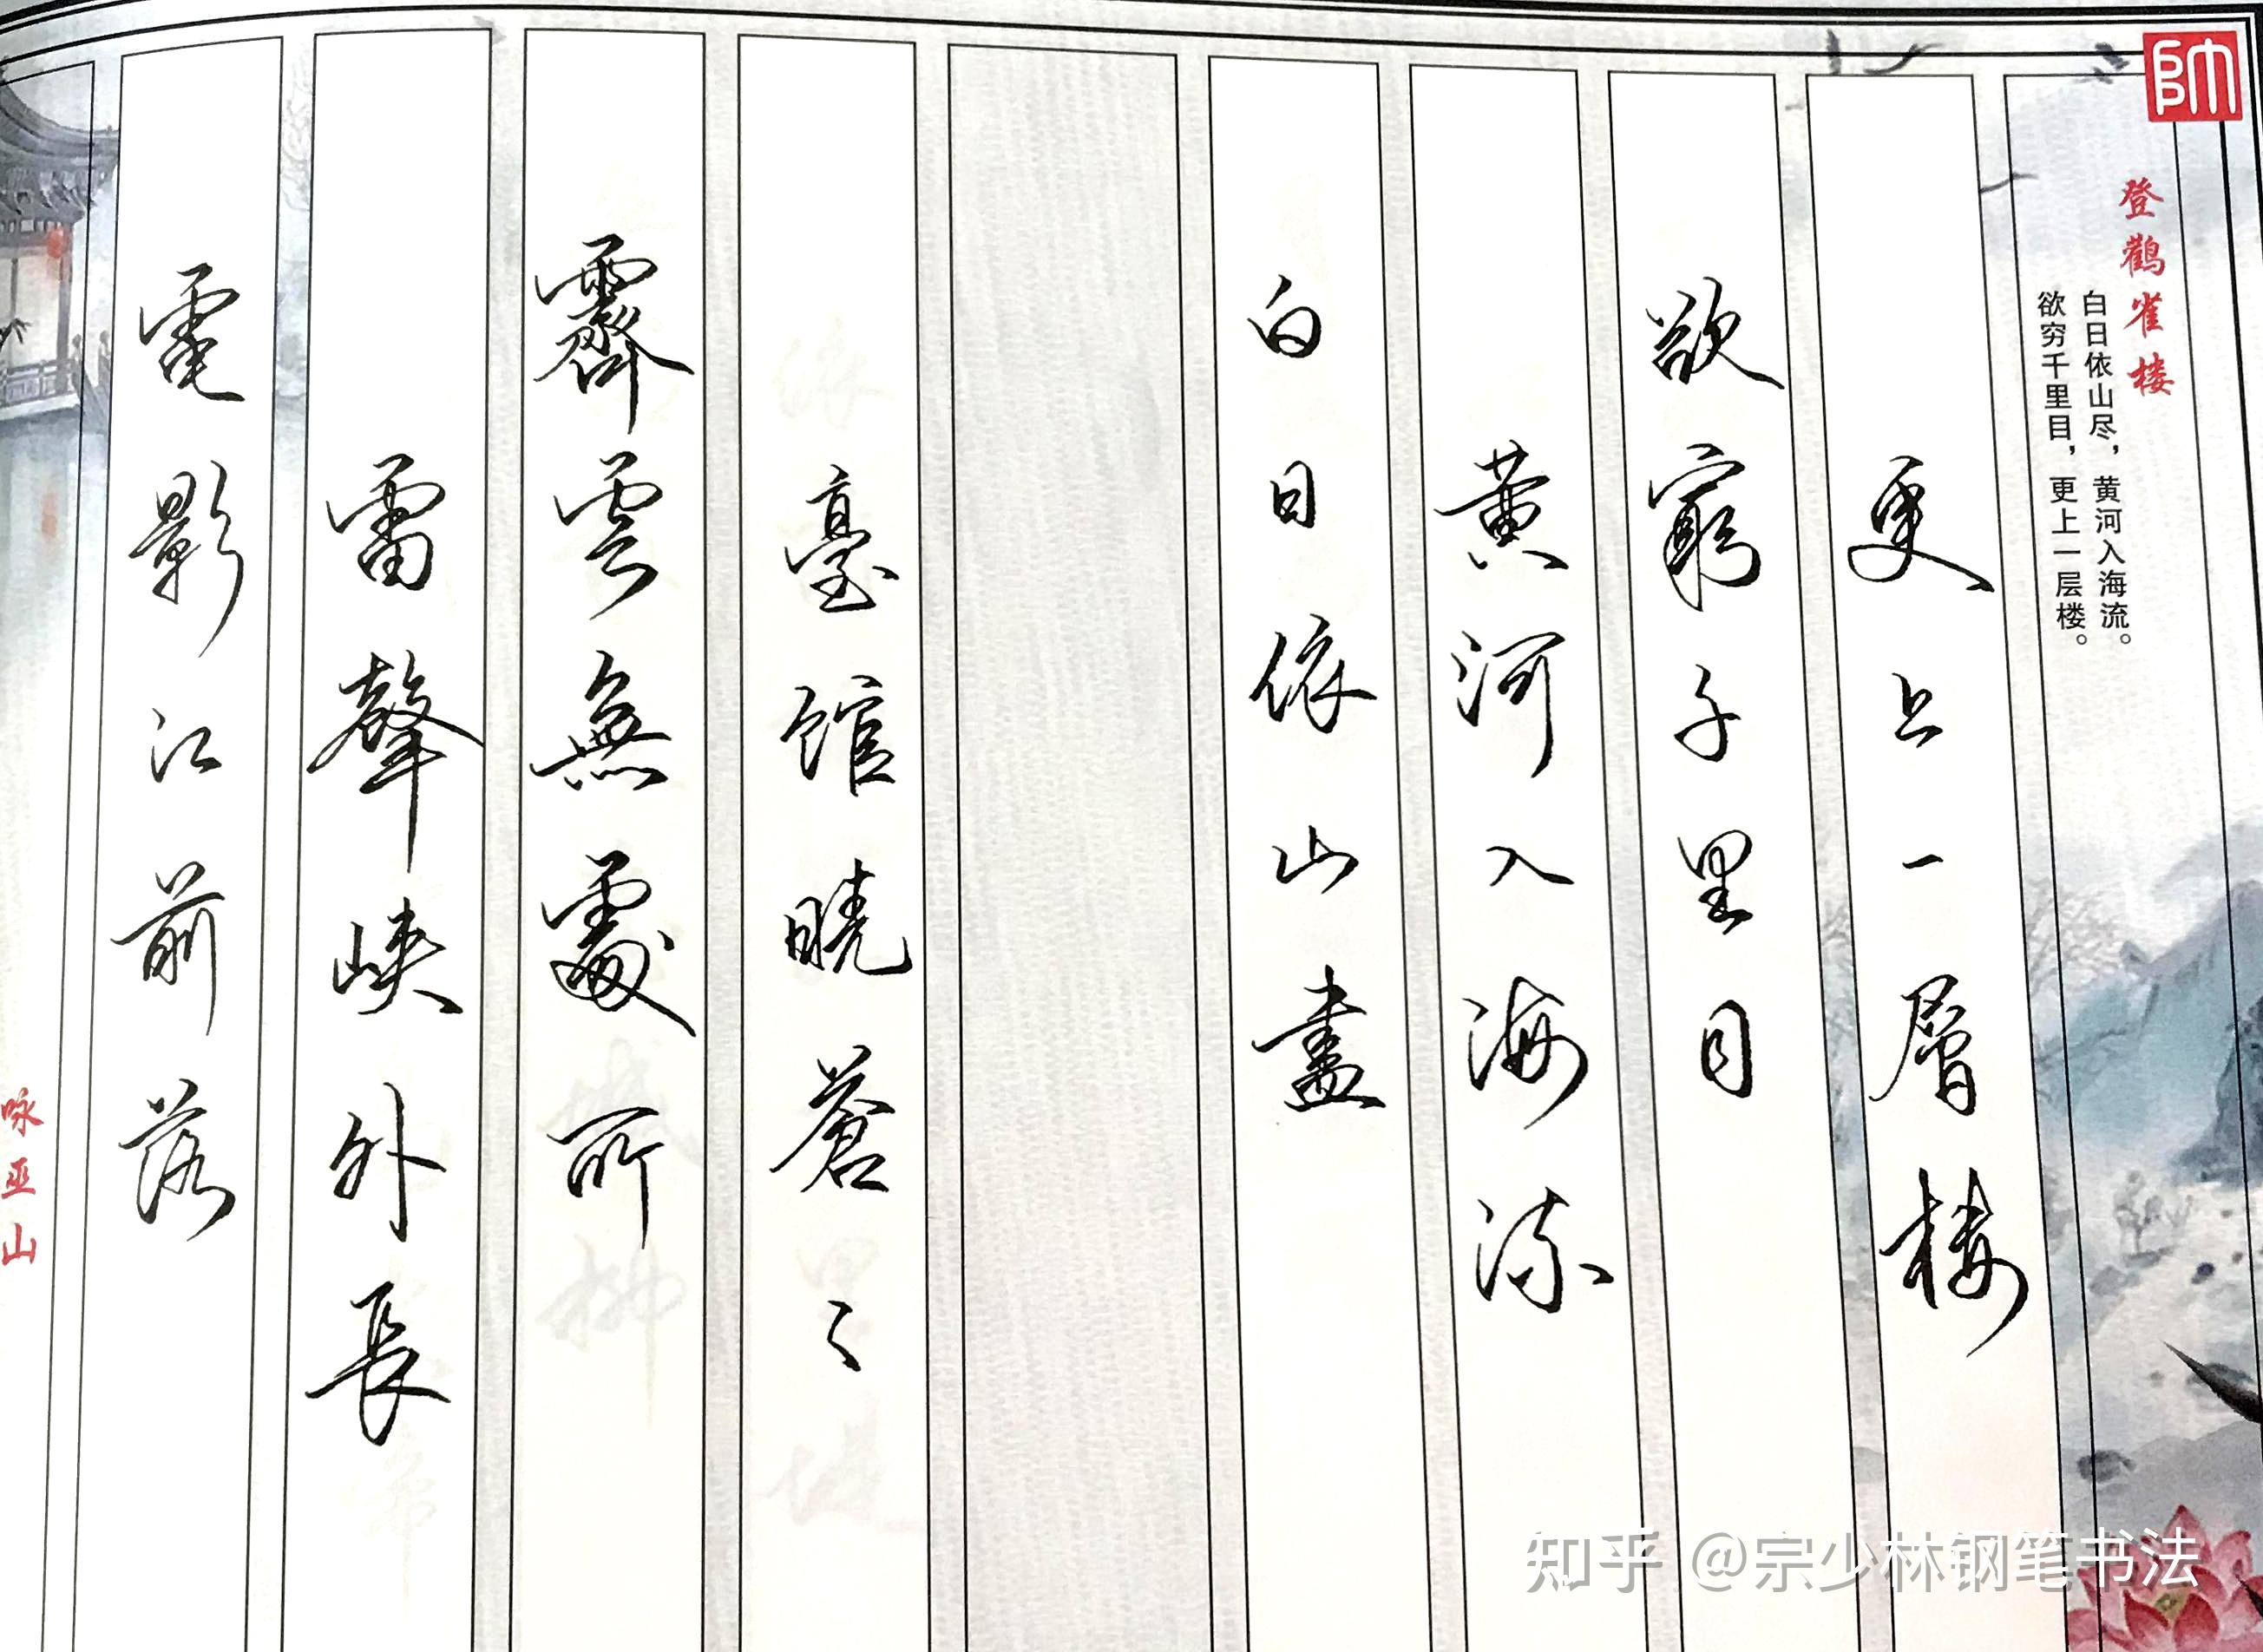 咏巫山
電影江前落
雷聲峽外長
霽雲無處所
臺館曉蒼々
白日依山盡
黄河入海流
欲窮千里目
更上一層楼
登鹳雀楼
白日依山尽，黄河入海流。
欲穷千里目，更上一层楼。
帥
知乎 @宗少林钢笔书法